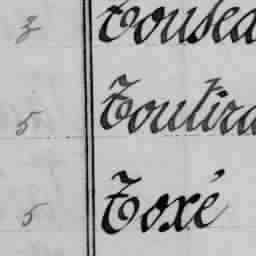 3 Tousea
5 Toutira
5 Toxé